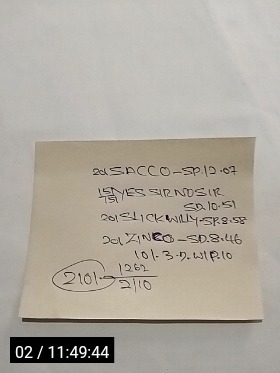 20l SACCO-SP.12.07
15l YES SIR NO SIR
15l SP.10.51
20l SLICK WILLY-SP.8.58
20l ZINCO-SP.8.46
10l.3.D.W/P.10
2101. 1262
2/10
02 / 11:49:44